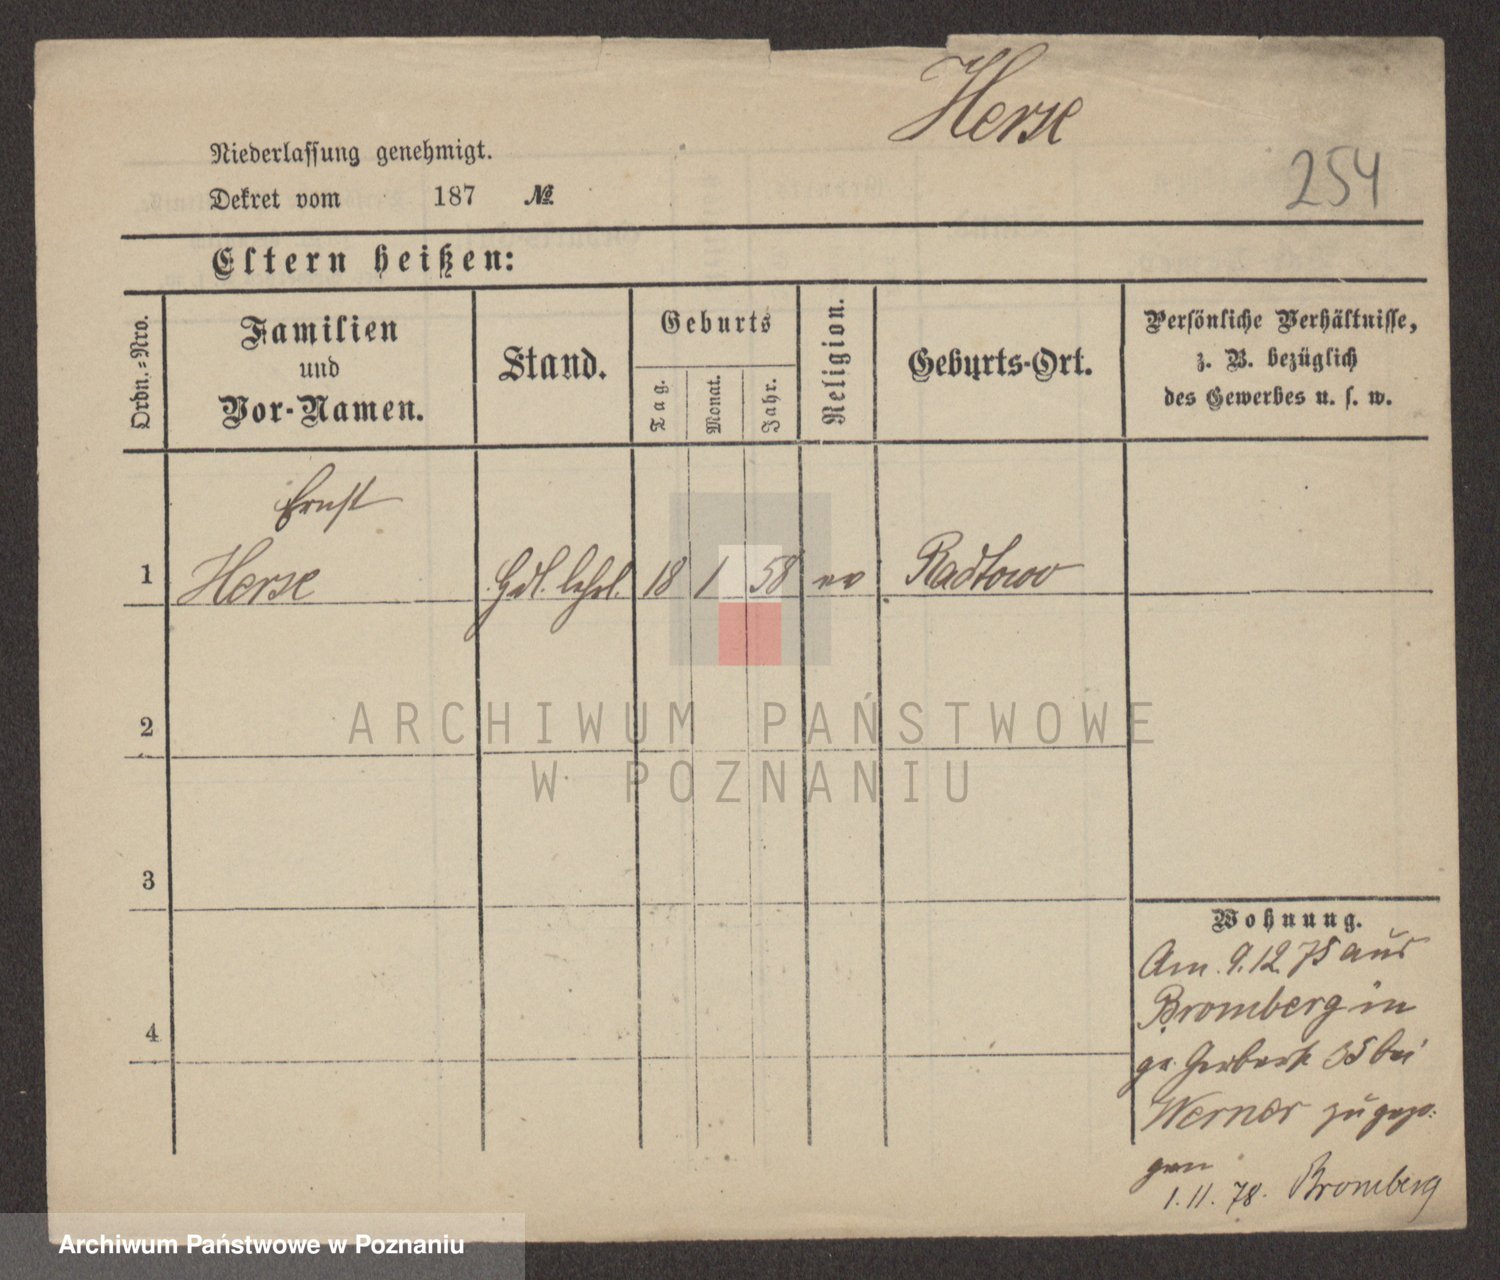 Herse
254
Niederlassung genehmigt.
Dekret vom 187 №
Eltern heißen:
Ordn.-Nro.
Familien
und
Vor-Namen.
Stand.
Geburts
Tag.
Monat.
Jahr.
Religion.
Geburts-Ort.
Persönliche Verhältnisse,
z. B. bezüglich
des Gewerbes u. s. w.
Ernst
1 Herse Hdl. lehrl. 18 1 58 ev Radlowo
2
3
4
Wohnung.
Am 9.12 75 aus
Bromberg in
gr. Gerberst 35 bei
Werner zugezo-
gen
1. 11. 78. Bromberg
ARCHIWUM PAŃSTWOWE
W POZNANIU
Archiwum Państwowe w Poznaniu